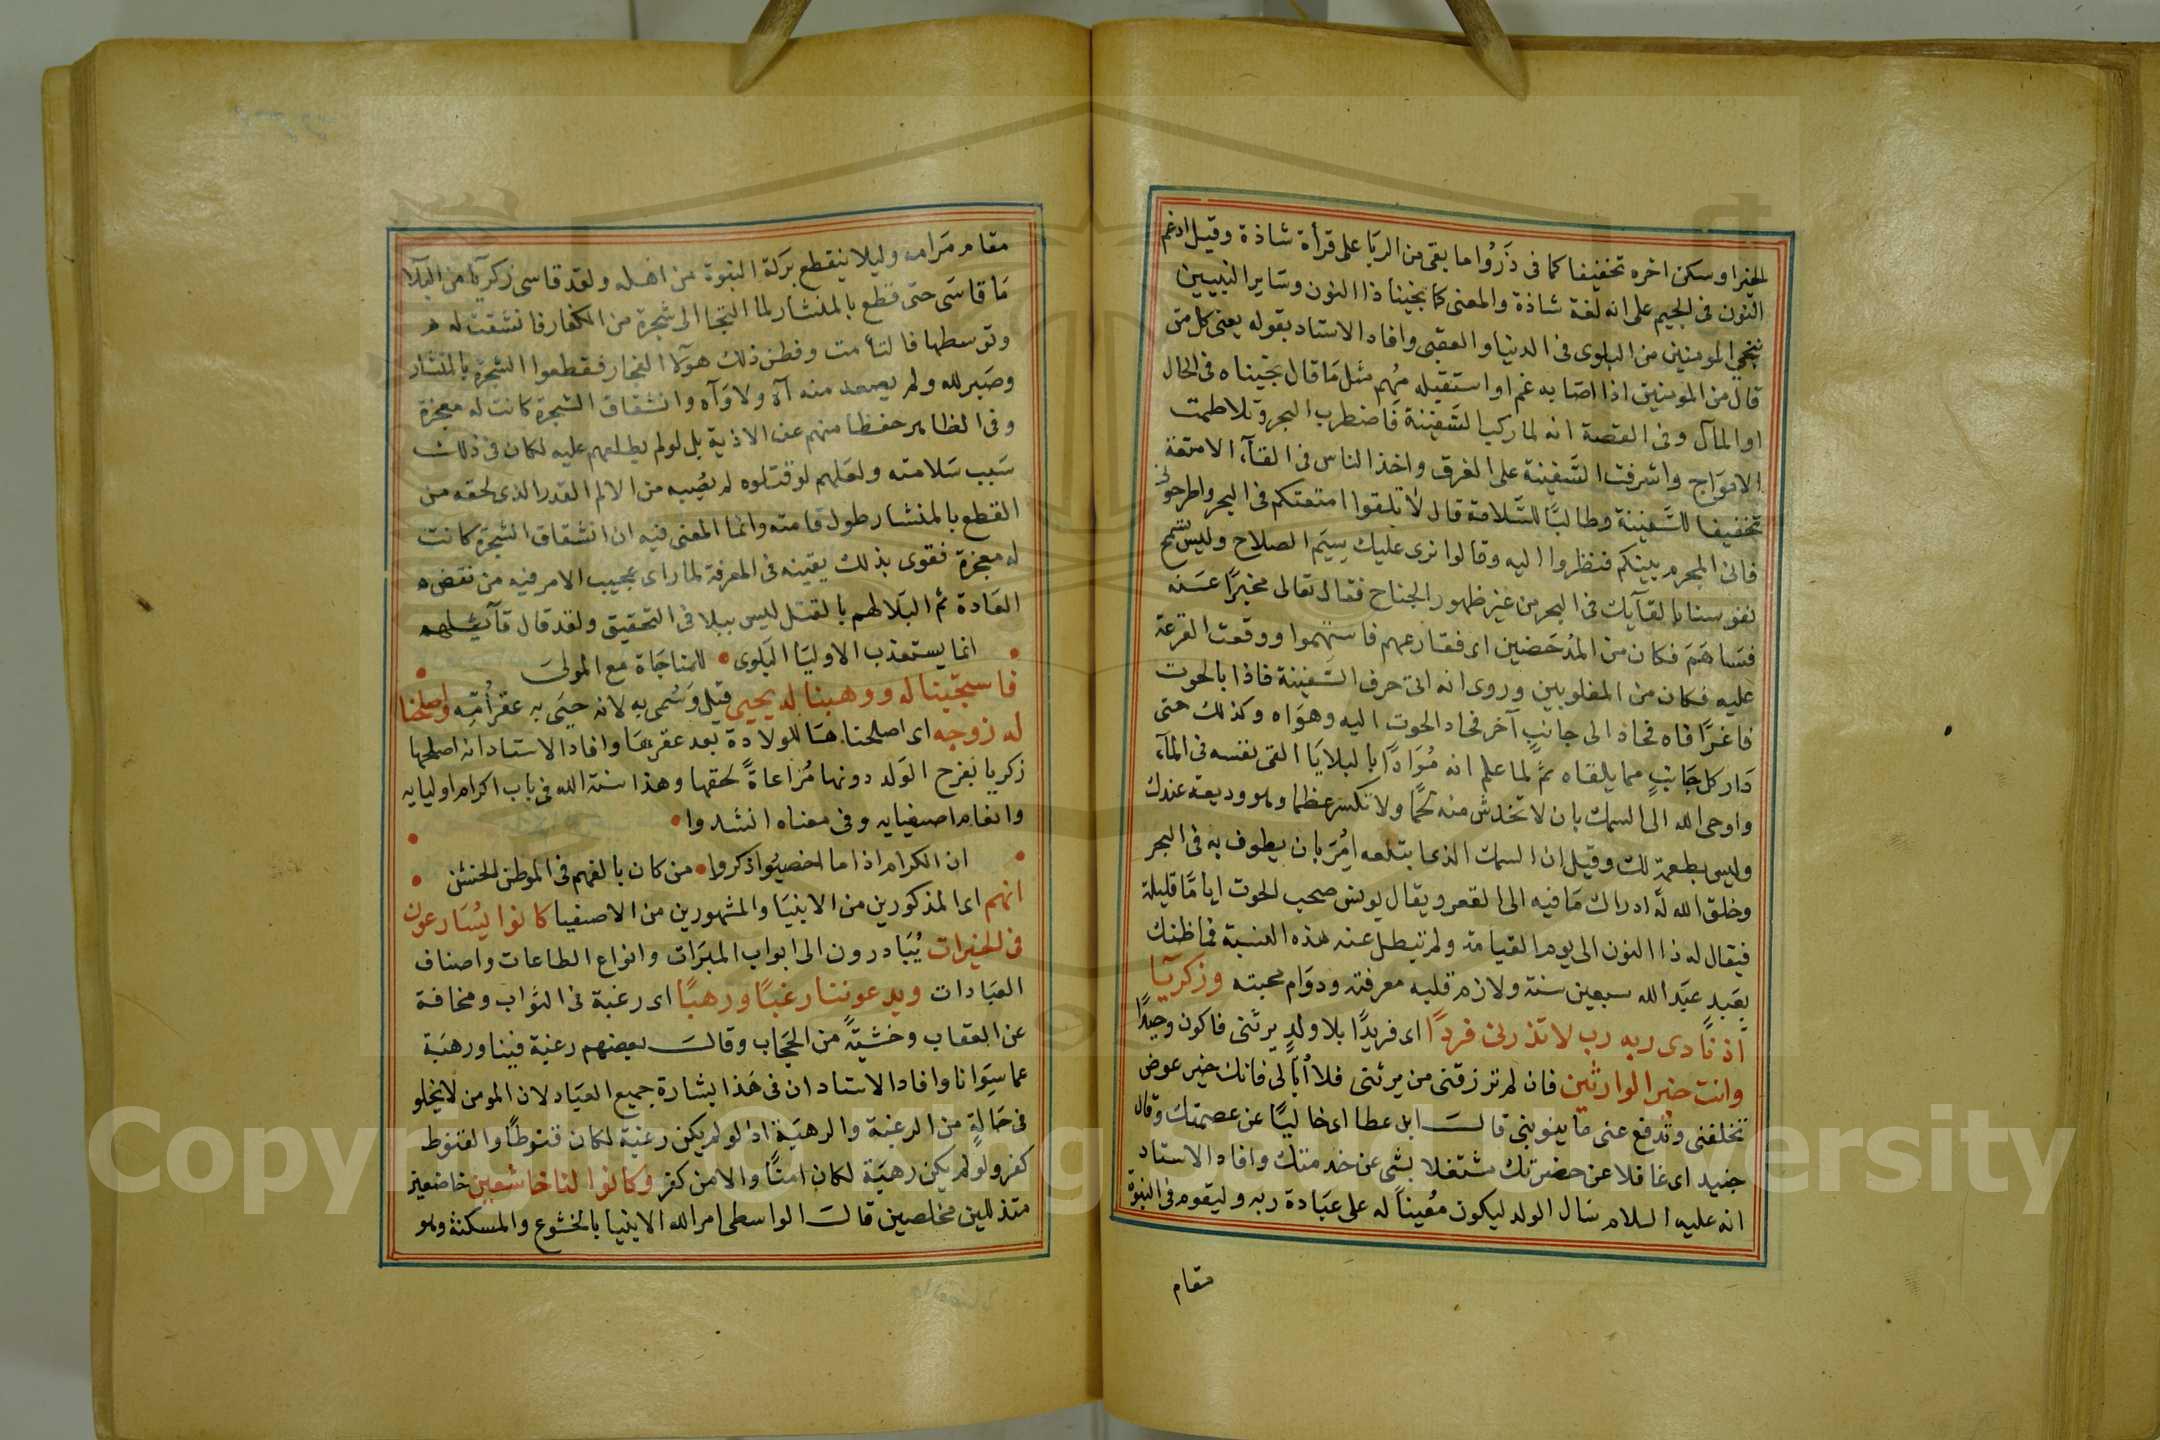 الخير او سكن اخره تخفيفا كما فى ذَرُوا ما بقى من الربَا على قرأة شاذة وقيل ادغم
النون فى الجيم على انه لغة شاذة والمعنى كما نجّينا ذا النون وسَاير النبيين
ننجي المومنين من البلوى فى الدنيا والعقبى وافاد الاستاد بقوله يعنى كل من
قال من المومنين اذا اصَابه غم او استقبله مُهم مثل مَا قال نجّيناه فى الحال
او المآل وفى القصة انه لما ركب السَّفينة فَاضطرب البحر وتلاطمت
الامَواج واشرفت السَّفينة على الغرق واخذ الناس فى القآء الامتعة
تخفيفا للسَّفينة وطالبًا للسَّلامة قال لا تلقوا امتعتكم فى البحر واطرحونى
فانى المجرم بينكم فنظروا اليه وقالوا نرى عليك سِيَم الصلاح وليس تسمح
نفوسنا بالقآيك فى البحر من غير ظهور الجناح فقال تعالى مخبرًا عَنه
فسَاهَمَ فكان من المُدْحَضين اى فقارعهم فاستهموا ووقعت القرعة
عليه فكان من المغلوبين وروى انه اتى حرف السَّفينة فاذا بالحوت
فاغرًا فاه فحاذ الى جانبٍ آخر فحاد الحوت اليه وهوَاه وكذلك حتى
دَار كل جَانبٍ مما يلقاه ثم لما علم انه مُوَادًا بالبلايَا القى نفسه فى المآء
واوحى الله الى السمك بان لا تخدش منه لحمًا ولا تكسر عظما وهو وديعة عندك
وليس بطعمة لك وقيل ان السمك الذى ابتلعه اُمِرَ بان يطوف به فى البحر
وخلق الله لَه ادراك مَا فيه الى القعر ويقال يونس صحب الحوت ايامًا قليلة
فيقال له ذا النون الى يوم القيامة ولم تبطل عنه هذه النسبة فما ظنك
بعَبدٍ عَبَد الله سبعين سنة ولازم قلبه معرفته ودوَام محبته وزكريَّآ
اذ نَادى ربه رب لا تذرنى فردًا اى فريدًا بلا ولدٍ يرثنى فاكون وحيدًا
وانت خير الوارثين فان لم ترزقنى من يرثنى فلا اُبَالى فانك خير عوض
تخلفنى وتُدفع عنى مَا ينوبنى قالَ ابن عطا اى خاليًا عن عصمتك وقال
جنيد اى غافلا عن حضرتك مشتغلا بشى عن خدمتك وافاد الاستاد
انه عليه السلام سَال الولد ليكون مُعيناً له على عبَادة ربه وليقوم فى النبوّة
مقام
مقام مَرَامه وليلا ينقطع بَركة النبوة من اهله ولقد قاسى زكريّآ من البلآ
مَا قاسَى حتى قطع بالمنشار لما التجا الى شجرة من الكفار فانشقت له
وتوسطها فالتأمت وفطن ذلك هولآ الفجار فقطعوا الشجرة بالمنشار
وصَبر لله ولم يصعد منه آه ولا وَآه وانشقاق الشجرة كانت له معجزة
وفى الظاهر حفظا منهم عن الاذية بل لو لم يطلعهم عليه لكان فى ذلك
سَبب سَلامته ولعَلهم لو قتلوه لم يصُبه من الالم القدر الذى لحقه من
القطع بالمنشار طول قامته وانما المعنى فيه ان انشقاق الشجرة كانت
له معجزة فقوى بذلك يقينه فى المعرفة لما راى عجيب الامر فيه من نقضه
العَادة ثم البَلا لهم بالقتل ليس ببلا فى التحقيق ولقد قال قآيلهم
انما يستعذب الاوليَا البَلوى • للمناجَاة مع المولىَ
فاستجبنا له ووهبنا له يحيى قيل وَسُمى به لانه حيىَ به عقر اُمّه واصلحنا
له زوجه اى اصلحناهَا للولادة بعد عقرهَا وافاد الاستاد انه اصلحها
زكريا بفرح الوَلد دونها مُرَاعاةً لحقها وهذا سنة الله فى باب اكرام اوليايه
وانعام اصفيايه وفى معناه انشدوا •
ان الكرام اذا ما اخصبُوا ذكروا • من كان يالفهم فى الموطن الخشن
انهم اى المذكورين من الانبيَا والمشهورين من الاصفيا كانوا يُسَارعون
فى الخيرات يُبَادرون الى ابواب المبرَات وانواع الطاعات واصناف
العبَادات ويدعوننا رغبًا ورهبًا اى رغبة فى الثواب ومخافة
عن العقاب وخشيَةً من الحِجَاب وقالَ بعضهم رغبة فينا ورهبَة
عما سِوَانا وافاد الاستاد ان فى هَذا بشارة جميع العبَاد لان المومن لا يخلو
فى حَالةٍ من الرغبَة والرهبَة اذ لو لم يكن رغبَة لكان قنوطًا والقنوط
كفر ولو لم يكن رهبَة لكان امنًا والامن كفر وكانوا لنا خاشعين خاضعين
متذللين مخلصين قالَ الواسطى امر الله الانبيا بالخشوع والمسكنة وهو
Copyright © King Saud University